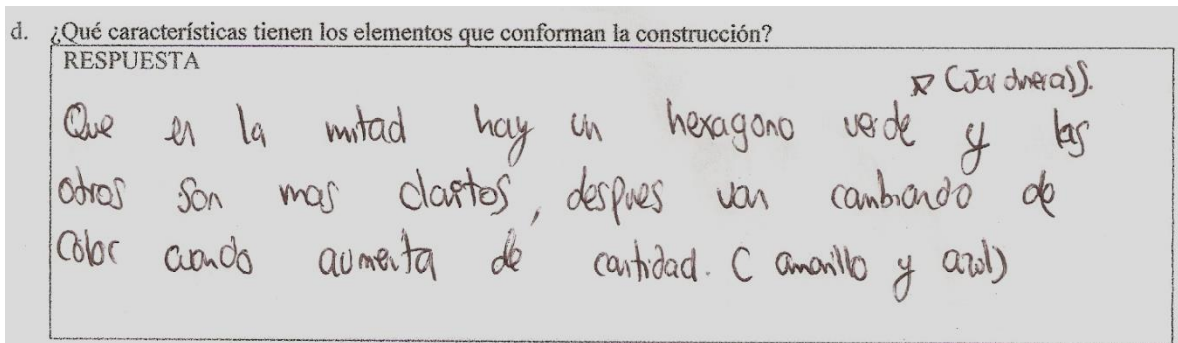 d. ¿Qué características tienen los elementos que conforman la construcción?
RESPUESTA
(Jardineras)).
Que en la mitad hay un hexagono verde y las
otros son mas claritos, despues van cambiando de
Color cuando aumenta de cantidad. ( amarillo y azul)